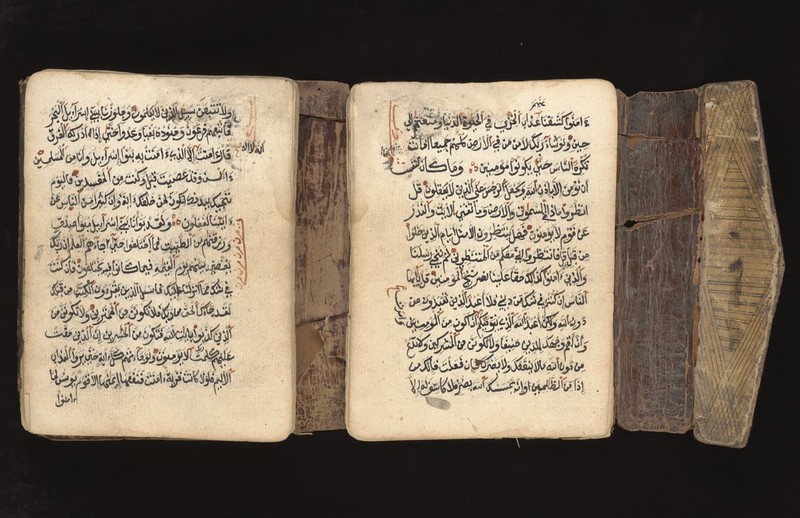 ولا تتبعن سبيل الذين لا يعلمون وجاوزنا ببني إسرايل البحر
فاتبعهم فرعون وجنوده بغيا وعدوا حتى إذا أدركه الغرق
قال ءامنت إلا الذي ءامنت به بنوا إسرايل وأنا من المسلمين
أنه لا إله
ءالن وقد عصيت قبل وكنت من المفسدين فاليوم
ننجيك ببدنك لتكون لمن خلفك ءاية وإن كثيرا من الناس عن
ءايتنا لغفلون ولقد بوأنا بني إسرايل مبوأ صدق
ورزقنهم من الطيبت فما اختلفوا حتى جاءهم العلم إن ربك
يقضي بينهم يوم القيمة فيما كانوا فيه يختلفون فإن كنت
في شك مما أنزلنا إليك فسئل الذين يقرءون الكتب من قبلك
لقد جاءك الحق من ربك فلا تكونن من الممترين ولا تكونن من
الذين كذبوا بايت الله فتكون من الخسرين إن الذين حقت
عليهم كلمت ربك لا يؤمنون ولو جاءتهم كل ءاية حتى يروا العذاب
الأليم فلولا كانت قرية ءامنت فنفعها إيمنها إلا قوم يونس لما
ءامنوا
عنهم
ءامنوا كشفنا عذاب الخزي في الحيوة الدنيا ومتعنهم إلى
حين ولو شاء ربك لأمن من في الأرض كلهم جميعا أفأنت
تكره الناس حتى يكونوا مؤمنين وما كان لنفس
أن تؤمن إلا بإذن الله ويجعل الرجس على الذين لا يعقلون قل
انظروا ماذا في السموت والأرض وما تغني الأيت والنذر
عن قوم لا يؤمنون فهل ينتظرون إلا مثل أيام الذين خلوا
من قبلهم قل فانتظروا إني معكم من المنتظرين ثم ننجي رسلنا
والذين ءامنوا كذلك حقا علينا ننج المؤمنين قل يأيها
الناس إن كنتم في شك من ديني فلا أعبد الذين تعبدون من
دون الله ولكن أعبد الله الذي يتوفيكم وأمرت أن أكون من المؤمنين
وأن أقم وجهك للدين حنيفا ولا تكونن من المشركين ولا تدع
من دون الله ما لا ينفعك ولا يضرك فإن فعلت فإنك من
إذا من الظلمين وإن يمسسك الله بضر فلا كاشف له إلا